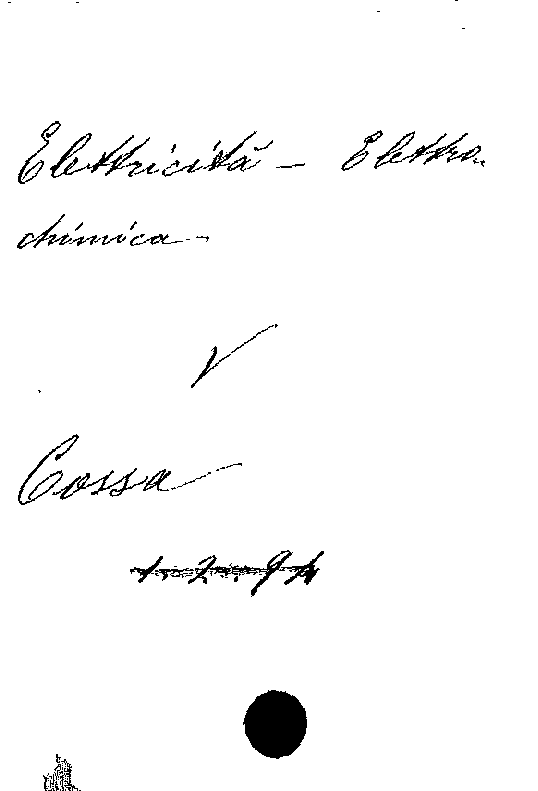 Elettricità - Elettro-
chimica -
V
Cossa